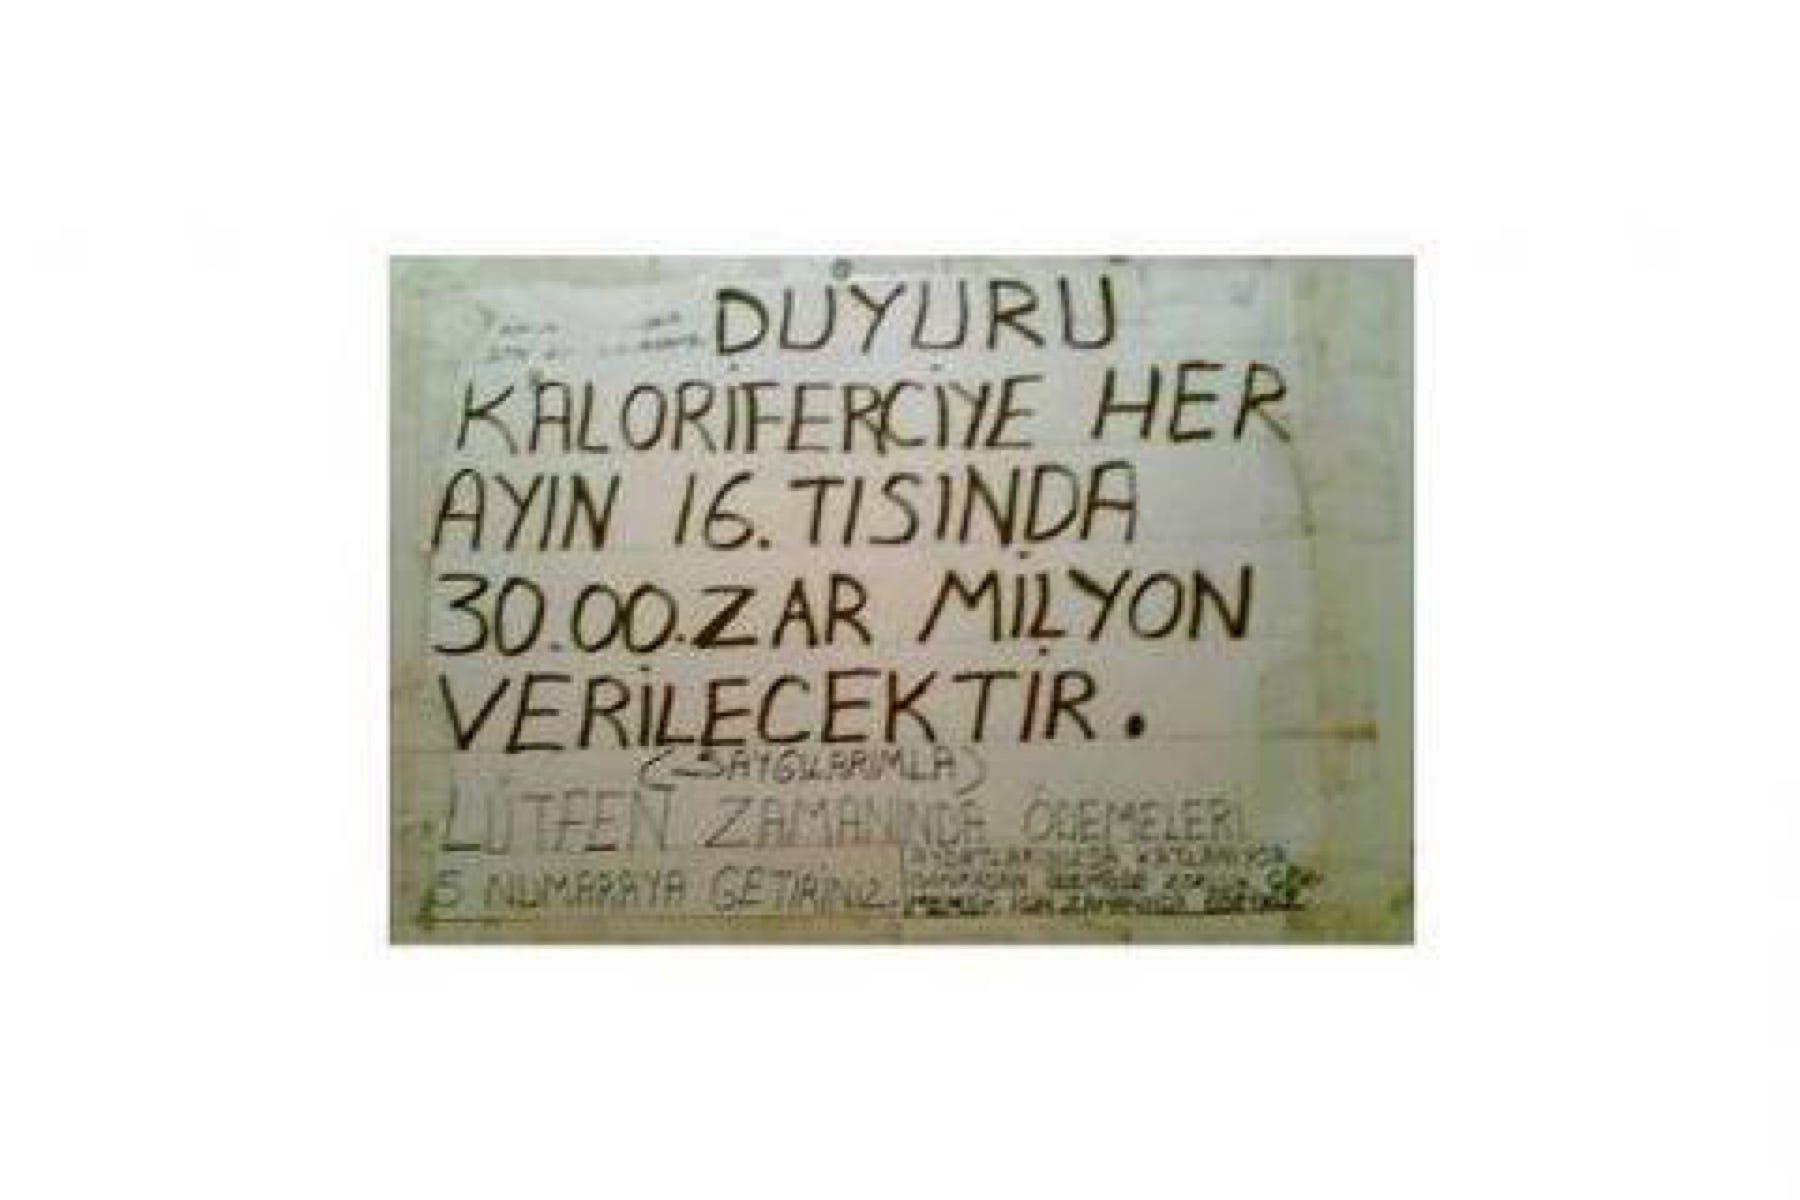 DUYURU
KALORİFERCİYE HER
AYIN 16.TISINDA
30.00.ZAR MİLYON
VERİLECEKTİR.
(SAYGILARIMLA)
LÜTFEN ZAMANINDA ÖDEMELERİ
5 NUMARAYA GETİRİNİZ.